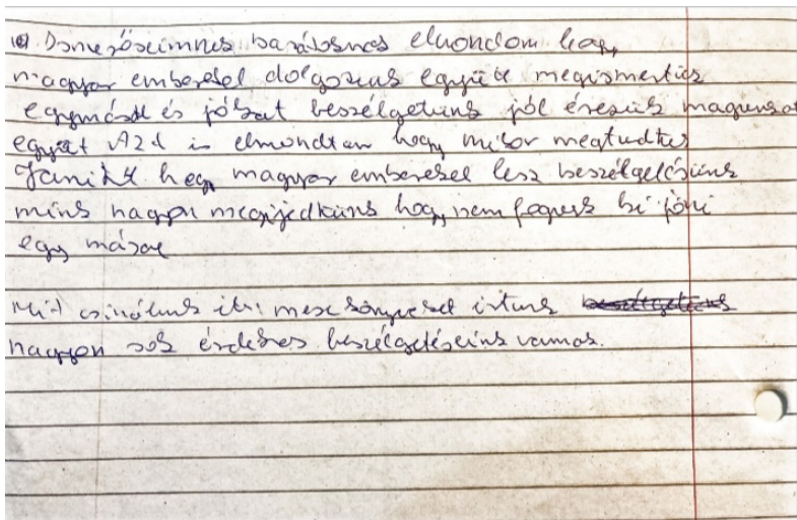 Ismerőseimnek barátoknak elmondom hogy
magyar emberekel dolgozunk együtt megismertük
egymást és jókat beszélgetünk jól érezük magunkat
együt Azt is elmondtam hogy mikor megtudtuk
hogy magyar emberekel lesz beszélgetésünk
mink nagyon megijedtünk hogy nem fogunk ki jöni
egy másal
Mit csinálunk itt: mese könyveket irtunk beszélgetünk
nagyon sok érdekes beszélgetéseink vannak.